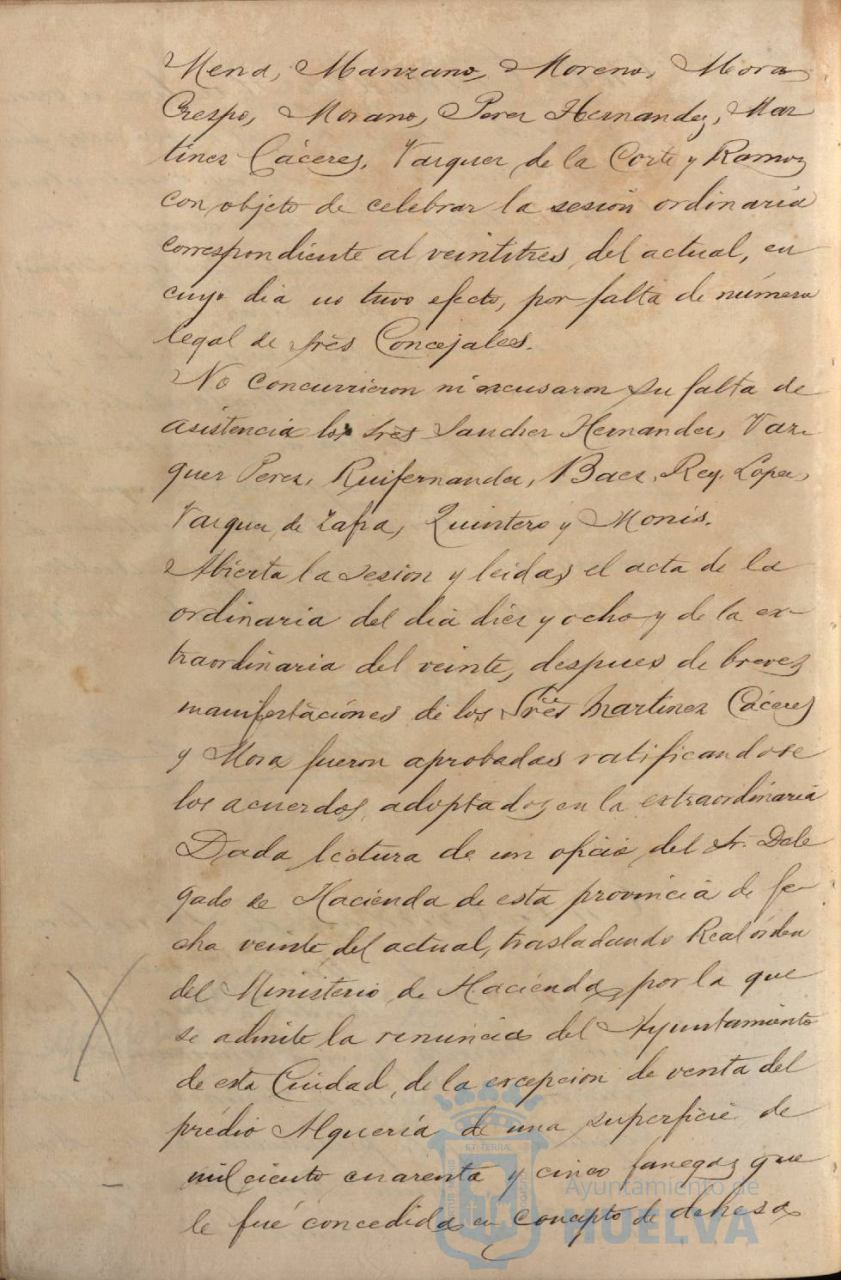 Mena, Manzano, Moreno, Mora
Crespo, Morano, Perez Hernandez, Mar
tinez Cáceres, Vazquez de la Corte y Ramos
con objeto de celebrar la sesión ordinaria
correspondiente al veintitres del actual, en
cuyo dia no tuvo efecto, por falta de número
legal de Sres Concejales.
No concurrieron ni excusaron su falta de
asistencia los Sres Sanchez Hernandez, Vaz-
quez Perez, Ruifernandez, Baez, Rey, Lopez,
Vazquez de Zafra, Quintero y Monis.
Abierta la sesion y leidas el acta de la
ordinaria del dia diez y ocho y de la ex-
traordinaria del veinte, despues de breves
manifestaciones de los Sres Martinez Cáceres
y Mora fueron aprobadas ratificandose
los acuerdos adoptados en la extraordinaria
Dada lectura de un oficio del Sr. Dele
gado de Hacienda de esta provincia de fe-
cha veinte del actual, trasladando Real órden
del Ministerio de Hacienda, por la que
se admite la renuncia del Ayuntamiento
de esta Ciudad, de la excepcion de venta del
prédio Alquería de una superficie de
mil ciento cuarenta y cinco fanegas que
le fué concedida en concepto de dehesa
Ayuntamiento de
HUELVA